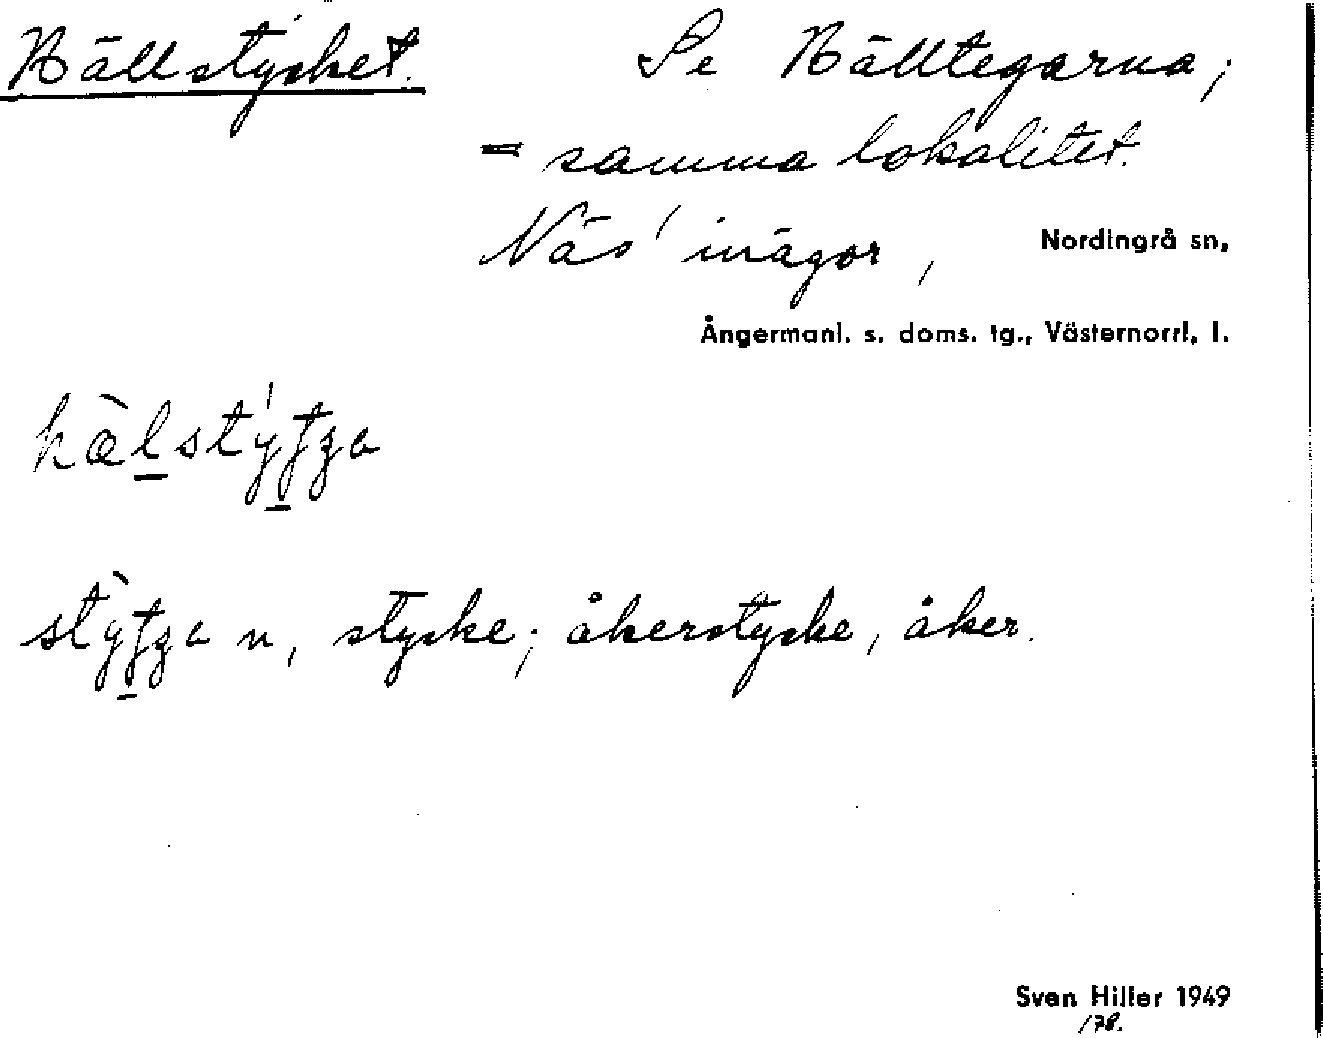 Hällstycket. Se Hälltegarna;
= samma lokalitet.
Näs' inägor, Nordingrå sn,
Ångermanl. s. doms. tg., Västernorrl. l.
hæ̀l̲stýt̲ʒa
stỳt̲ʒa n, stycke; åkerstycke, åker.
Sven Hiller 1949
178.